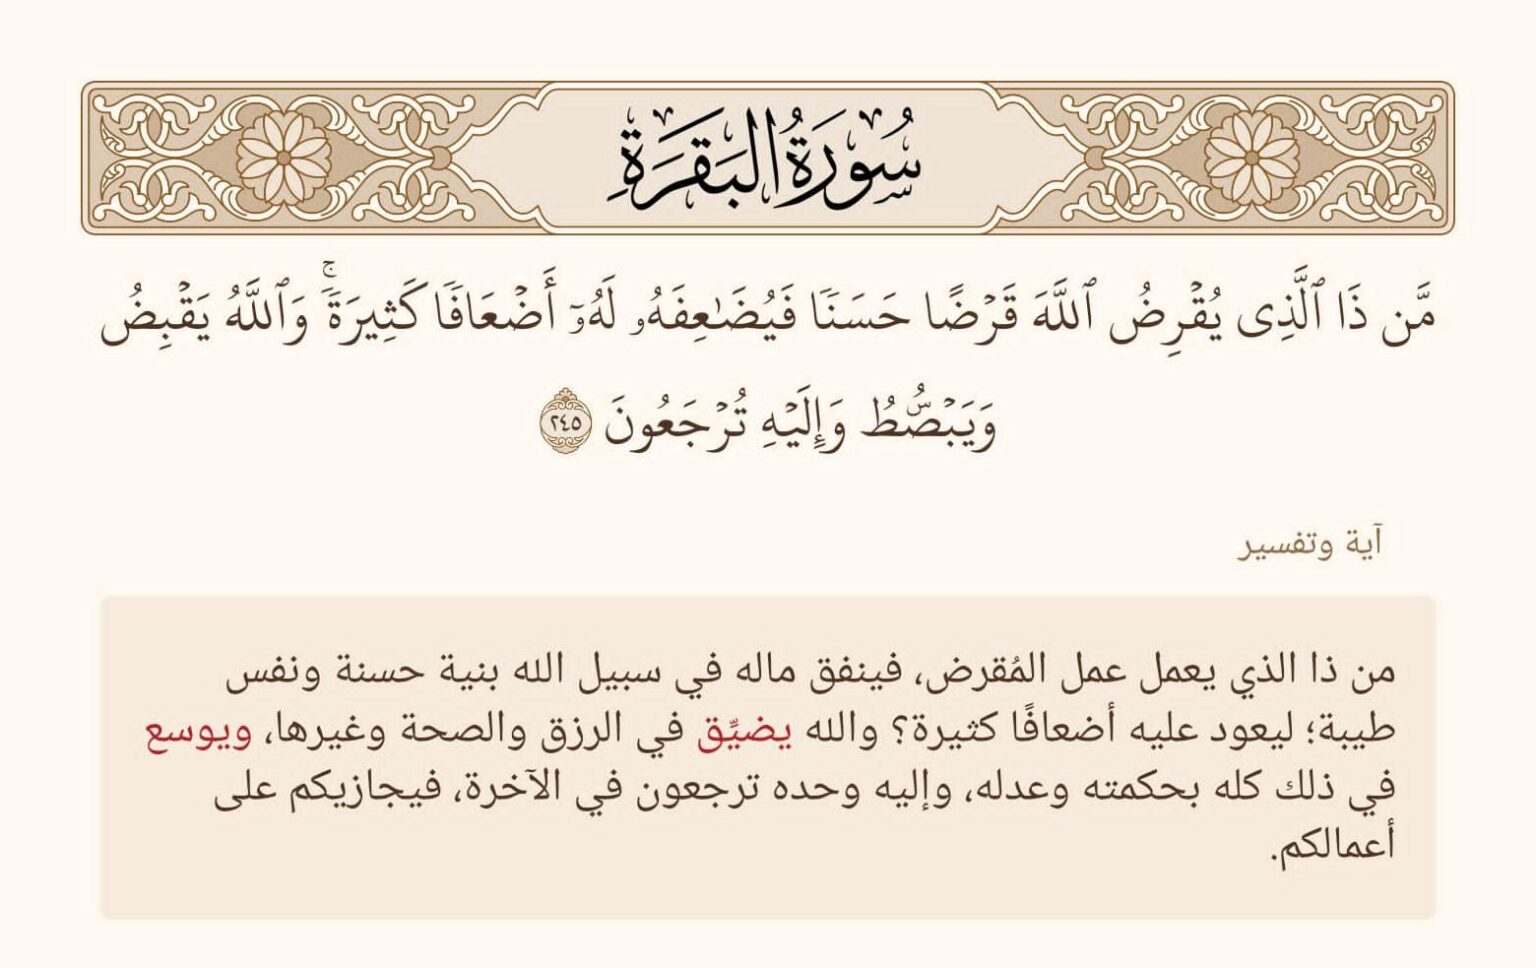 سُورَةُ البَقَرَةِ
مَّن ذَا ٱلَّذِى يُقْرِضُ ٱللَّهَ قَرْضًا حَسَنًا فَيُضَٰعِفَهُۥ لَهُۥٓ أَضْعَافًا كَثِيرَةً ۚ وَٱللَّهُ يَقْبِضُ
وَيَبْصُۜطُ وَإِلَيْهِ تُرْجَعُونَ ٢٤٥
آية وتفسير
من ذا الذي يعمل عمل المُقرض، فينفق ماله في سبيل الله بنية حسنة ونفس
طيبة؛ ليعود عليه أضعافًا كثيرة؟ والله يضيِّق في الرزق والصحة وغيرها، ويوسع
في ذلك كله بحكمته وعدله، وإليه وحده ترجعون في الآخرة، فيجازيكم على
أعمالكم.